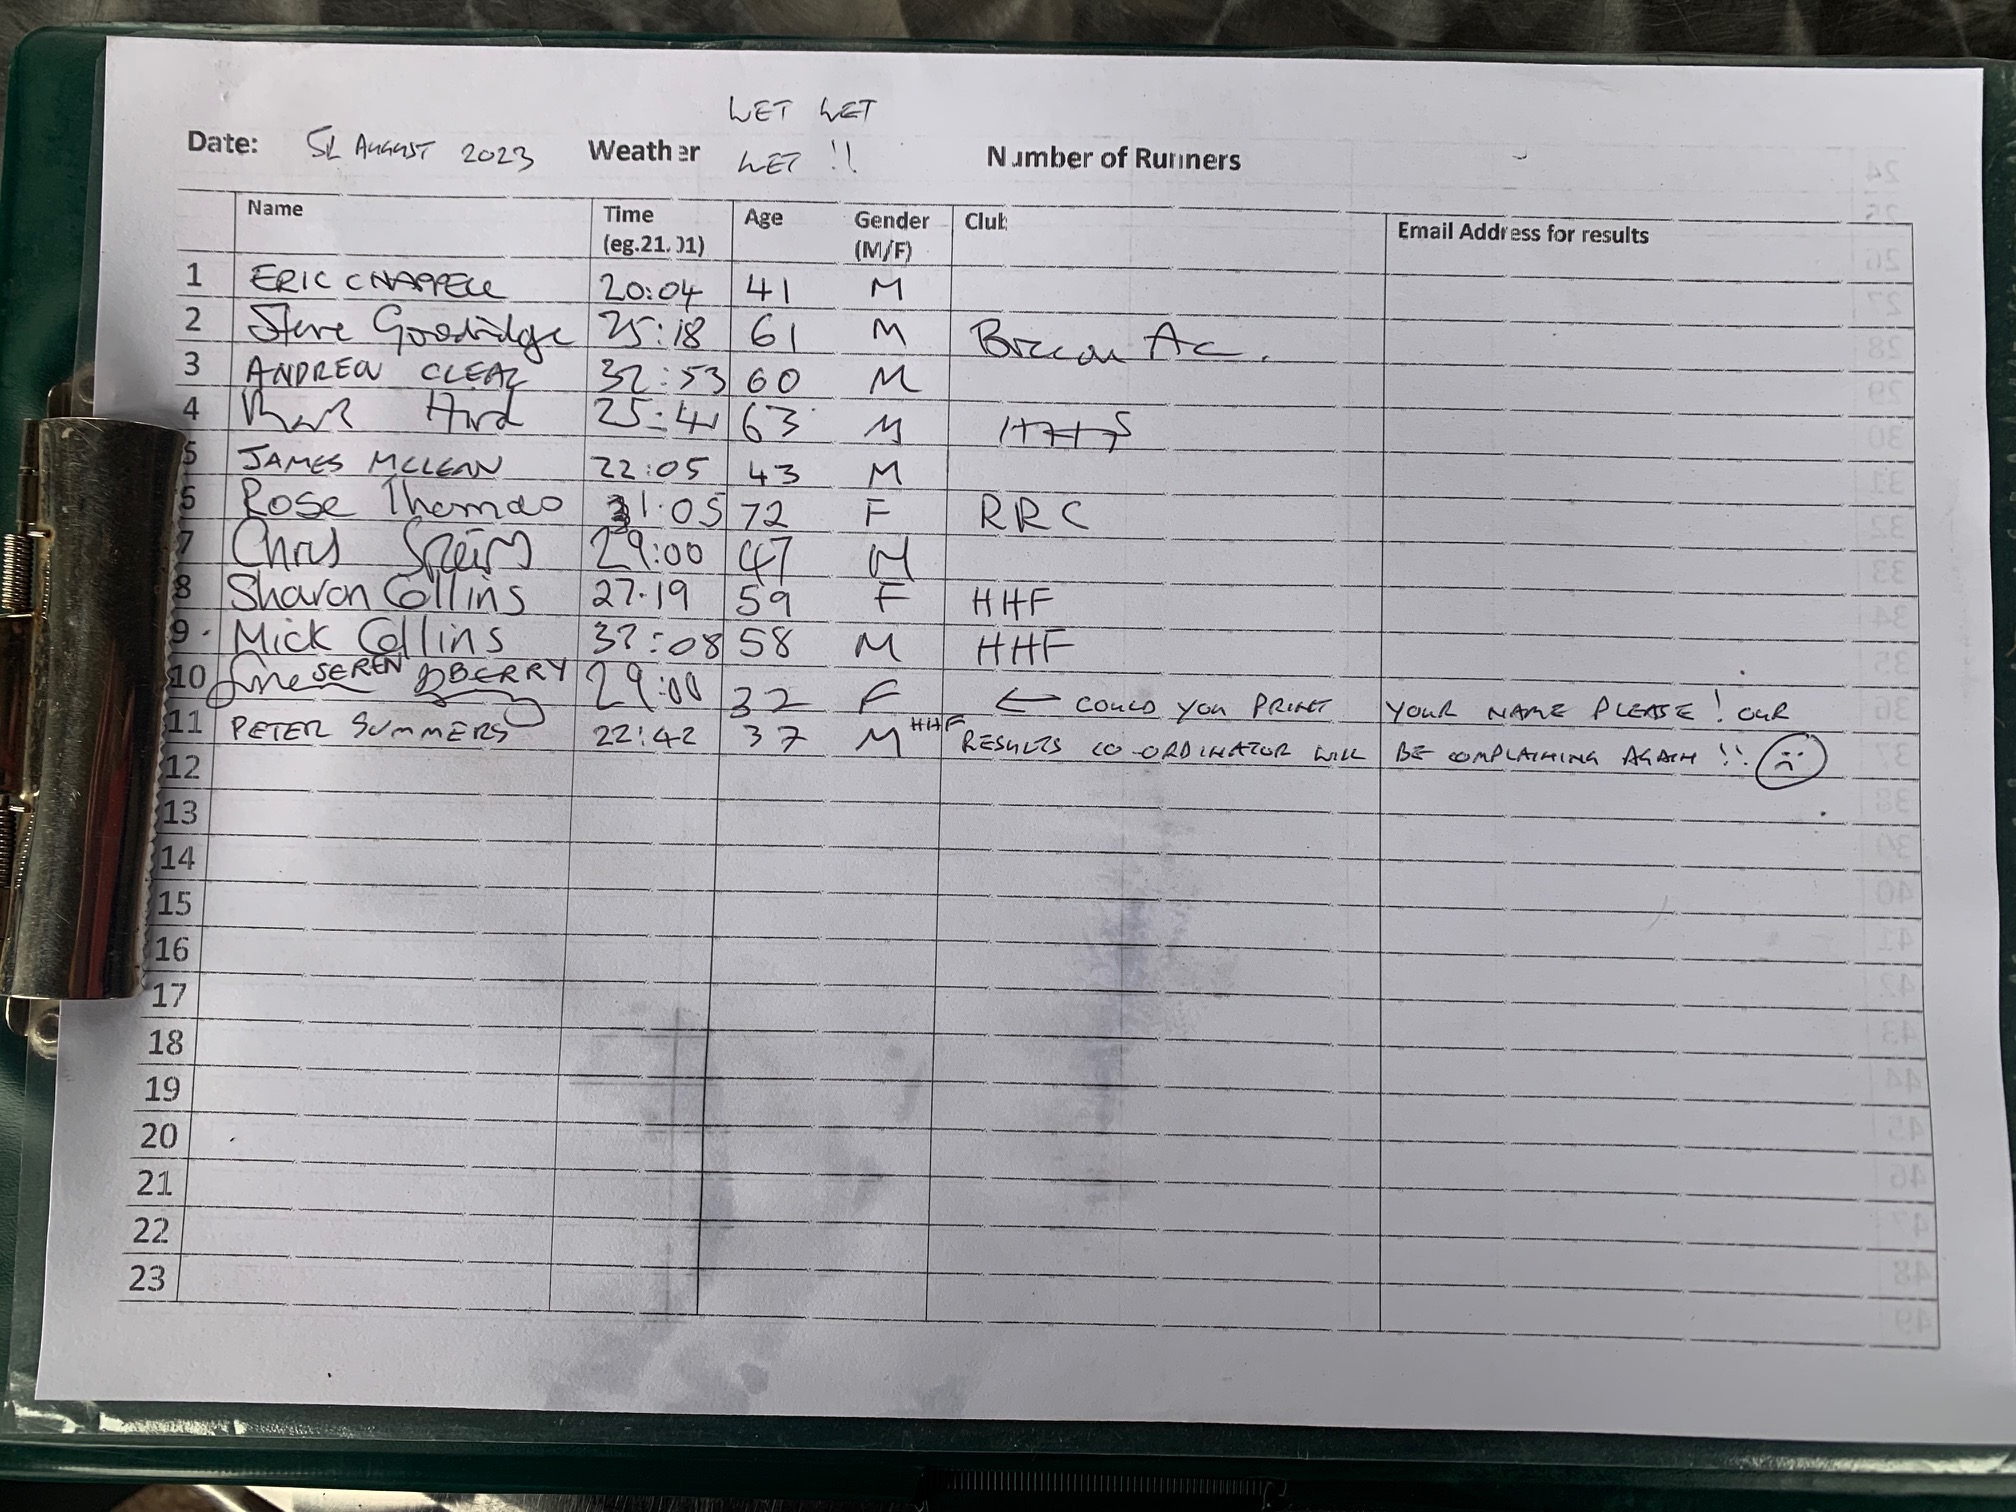 WET WET
Date: 5th AUGUST 2023 Weather WET !! Number of Runners
Name Time (eg.21.01) Age Gender (M/F) Club Email Address for results
1 ERIC CHAPPELL 20:04 41 M
2 Steve Goodridge 25:18 61 M Brecon Ac.
3 ANDREW CLEAL 32:53 60 M
4 Hird 25:41 63 M
5 JAMES MCLEAN 22:05 43 M
6 Rose Thomas 31:05 72 F RRC
7 Chris 29:00 47 M
8 Sharon Collins 27.19 59 F HHF
9 Mick Collins 32:08 58 M HHF
10 SEREN BERRY 29:00 32 F ← COULD YOU PRINT YOUR NAME PLEASE! OUR
11 PETER SUMMERS 22:42 37 M HHF RESULTS CO-ORDINATOR WILL BE COMPLAINING AGAIN !!
12
13
14
15
16
17
18
19
20
21
22
23